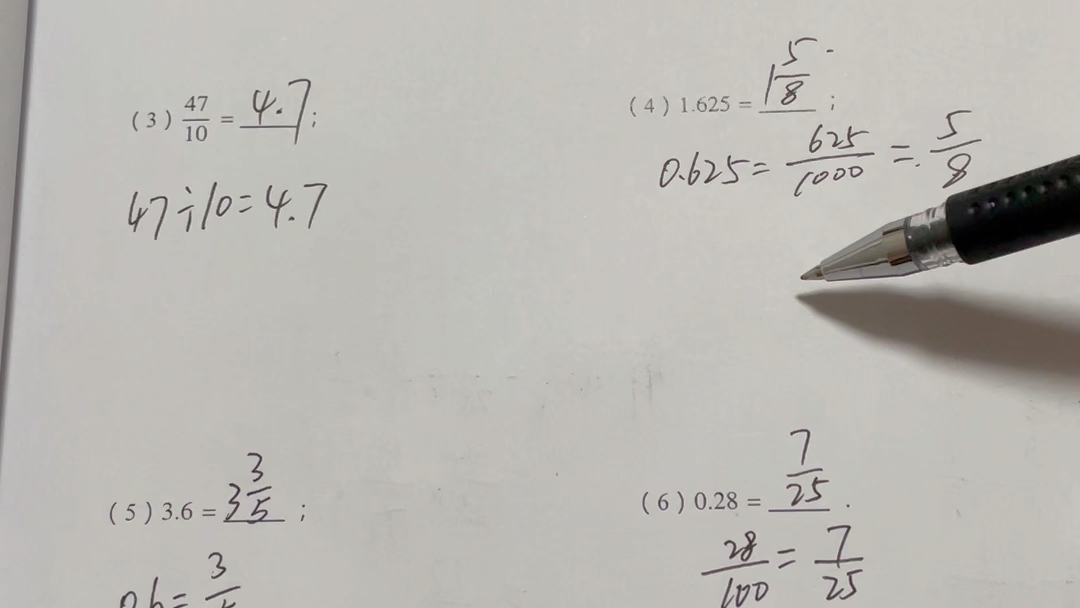 (3) 47/10 = 4.7;
47÷10=4.7
(4) 1.625 = 1 5/8;
0.625 = 625/1000 = 5/8
(5) 3.6 = 3 3/5;
0.6 = 3/5
(6) 0.28 = 7/25.
28/100 = 7/25